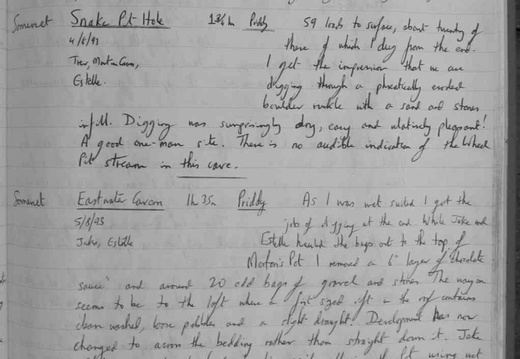 Somerset Snake Pit Hole 1¾ h Priddy 59 loads to surface, about twenty of
4/8/93 these of which I dug from the end.
Trev, Martin Grass, I get the impression that we are
Estelle. digging through a phreatically eroded
boulder ruckle with a sand and stones
infill. Digging was surprisingly dry, easy and relatively pleasant!
A good one-man site. There is no audible indication of the Wheel
Pit stream in this cave.
Somerset Eastwater Cavern 1h 35m Priddy As I was wet suited I got the
5/8/93 job of digging at the end. While Jake and
Jake, Estelle Estelle hauled the bags out to the top of
Morton's Pot I removed a 6" layer of "chocolate
sauce" and around 20 odd bags of gravel and stones. The way on
seems to be to the left where a fist sized rift in the roof contains
clean washed, loose pebbles and a slight draught. Development has now
changed to across the bedding rather than straight down it. Jake